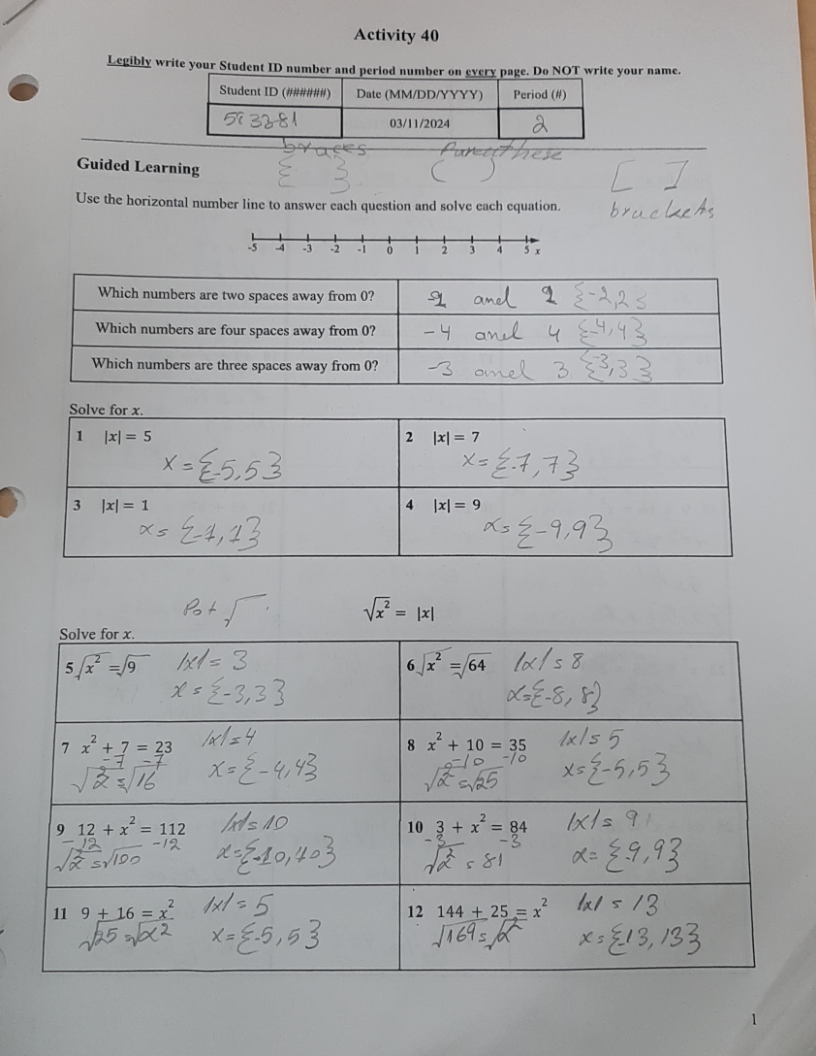 Activity 40
Legibly write your Student ID number and period number on every page. Do NOT write your name.
Student ID (######) Date (MM/DD/YYYY) Period (#)
03/11/2024 2
braces
Guided Learning { } ( ) [ ]
Use the horizontal number line to answer each question and solve each equation. brackets
-5 -4 -3 -2 -1 0 1 2 3 4 5 x
Which numbers are two spaces away from 0? and 2 {-2,2}
Which numbers are four spaces away from 0? -4 and 4 {-4,4}
Which numbers are three spaces away from 0? -3 and 3 {-3,3}
Solve for x.
1 |x| = 5
x = {-5,5}
2 |x| = 7
x = {-7,7}
3 |x| = 1
x = {-1,1}
4 |x| = 9
x = {-9,9}
√x² = |x|
Solve for x.
5 √x² = √9 |x| = 3
x = {-3,3}
6 √x² = √64 |x| = 8
x = {-8,8}
7 x² + 7 = 23 |x| = 4
-7 -7
√x² = √16 x = {-4,4}
8 x² + 10 = 35 |x| = 5
-10 -10
√x² = √25 x = {-5,5}
9 12 + x² = 112 |x| = 10
-12 -12
√x² = √100 x = {-10,10}
10 3 + x² = 84 |x| = 9
-3 -3
√x² = 81 x = {-9,9}
11 9 + 16 = x² |x| = 5
√25 = √x² x = {-5,5}
12 144 + 25 = x² |x| = 13
√169 = √x² x = {-13,13}
1